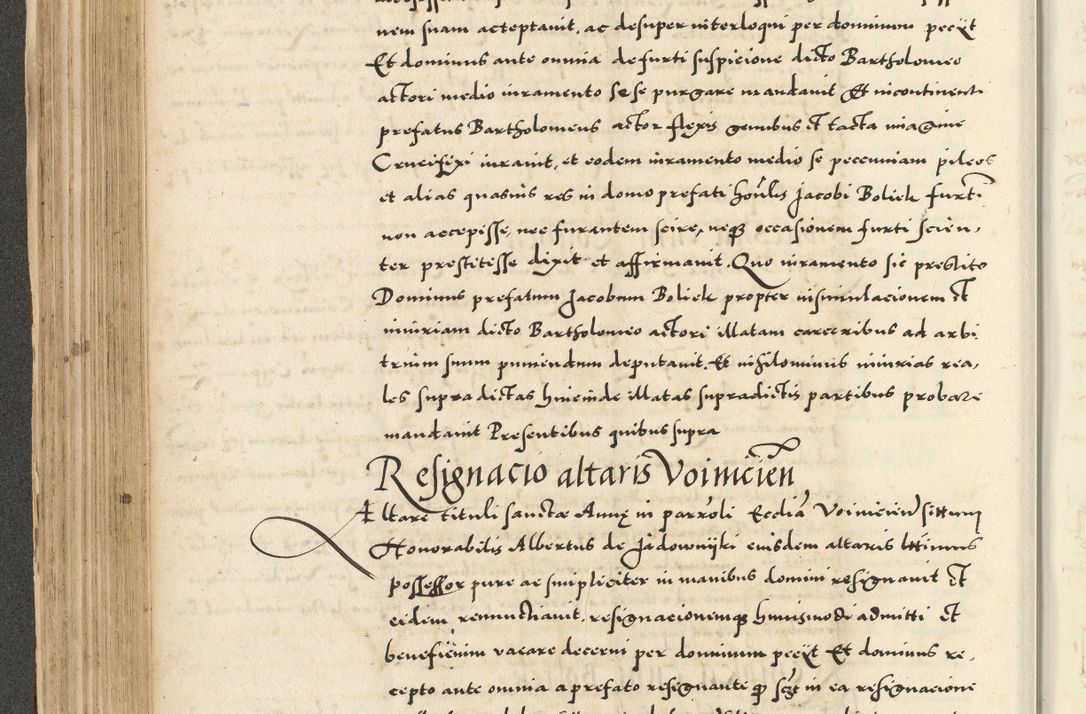 nem suam acceptavit, ac desuper interloqui per dominum peciit
Et dominus ante omnia de furti suspicione dicto Bartholomeo
actori medio iuramento se se purgare mandavit Et incontinenti
prefatus Bartholomeus actor flexis genibus et tacta imagine
Crucifixi iuravit, et eodem iuramento medio se pecuniam pileos
et alias quasuis res in domo prefati hon̄lis Jacobi Boliek furti
non accepisse, nec furantem scire, neq3 occasionem furti scien,
ter prestitesse dixit et affirmavit. Quo iuramento sic prestito
Dominus prefatum Jacobum Boliek propter insimulacionem et
iniuriam dicto Bartholomeo actori illatam carceribus ad arbi
trium suum puniendum deputavit, Et nihilominus iniurias rea,
les supra dictas hincinde illatas supradictis partibus probare
mandavit Presentibus quibus supra
Resignacio altaris Voinicien̄
Altare tituli sanctæ Annę in parrōli Eccliā Voinicien̄ situm
Honorabilis Albertus de Jadowniki eiusdem altaris lttimus
possessor pure ac simpliciter in manibus domini resignavit et
eidem renunctiavit, resignacionemq3 huiusmodi admitti et
beneficium vacare decerni per dominum peciit Et dominus re,
cepto ante omnia a prefato resignante q̄ scȝt in ea resignacione